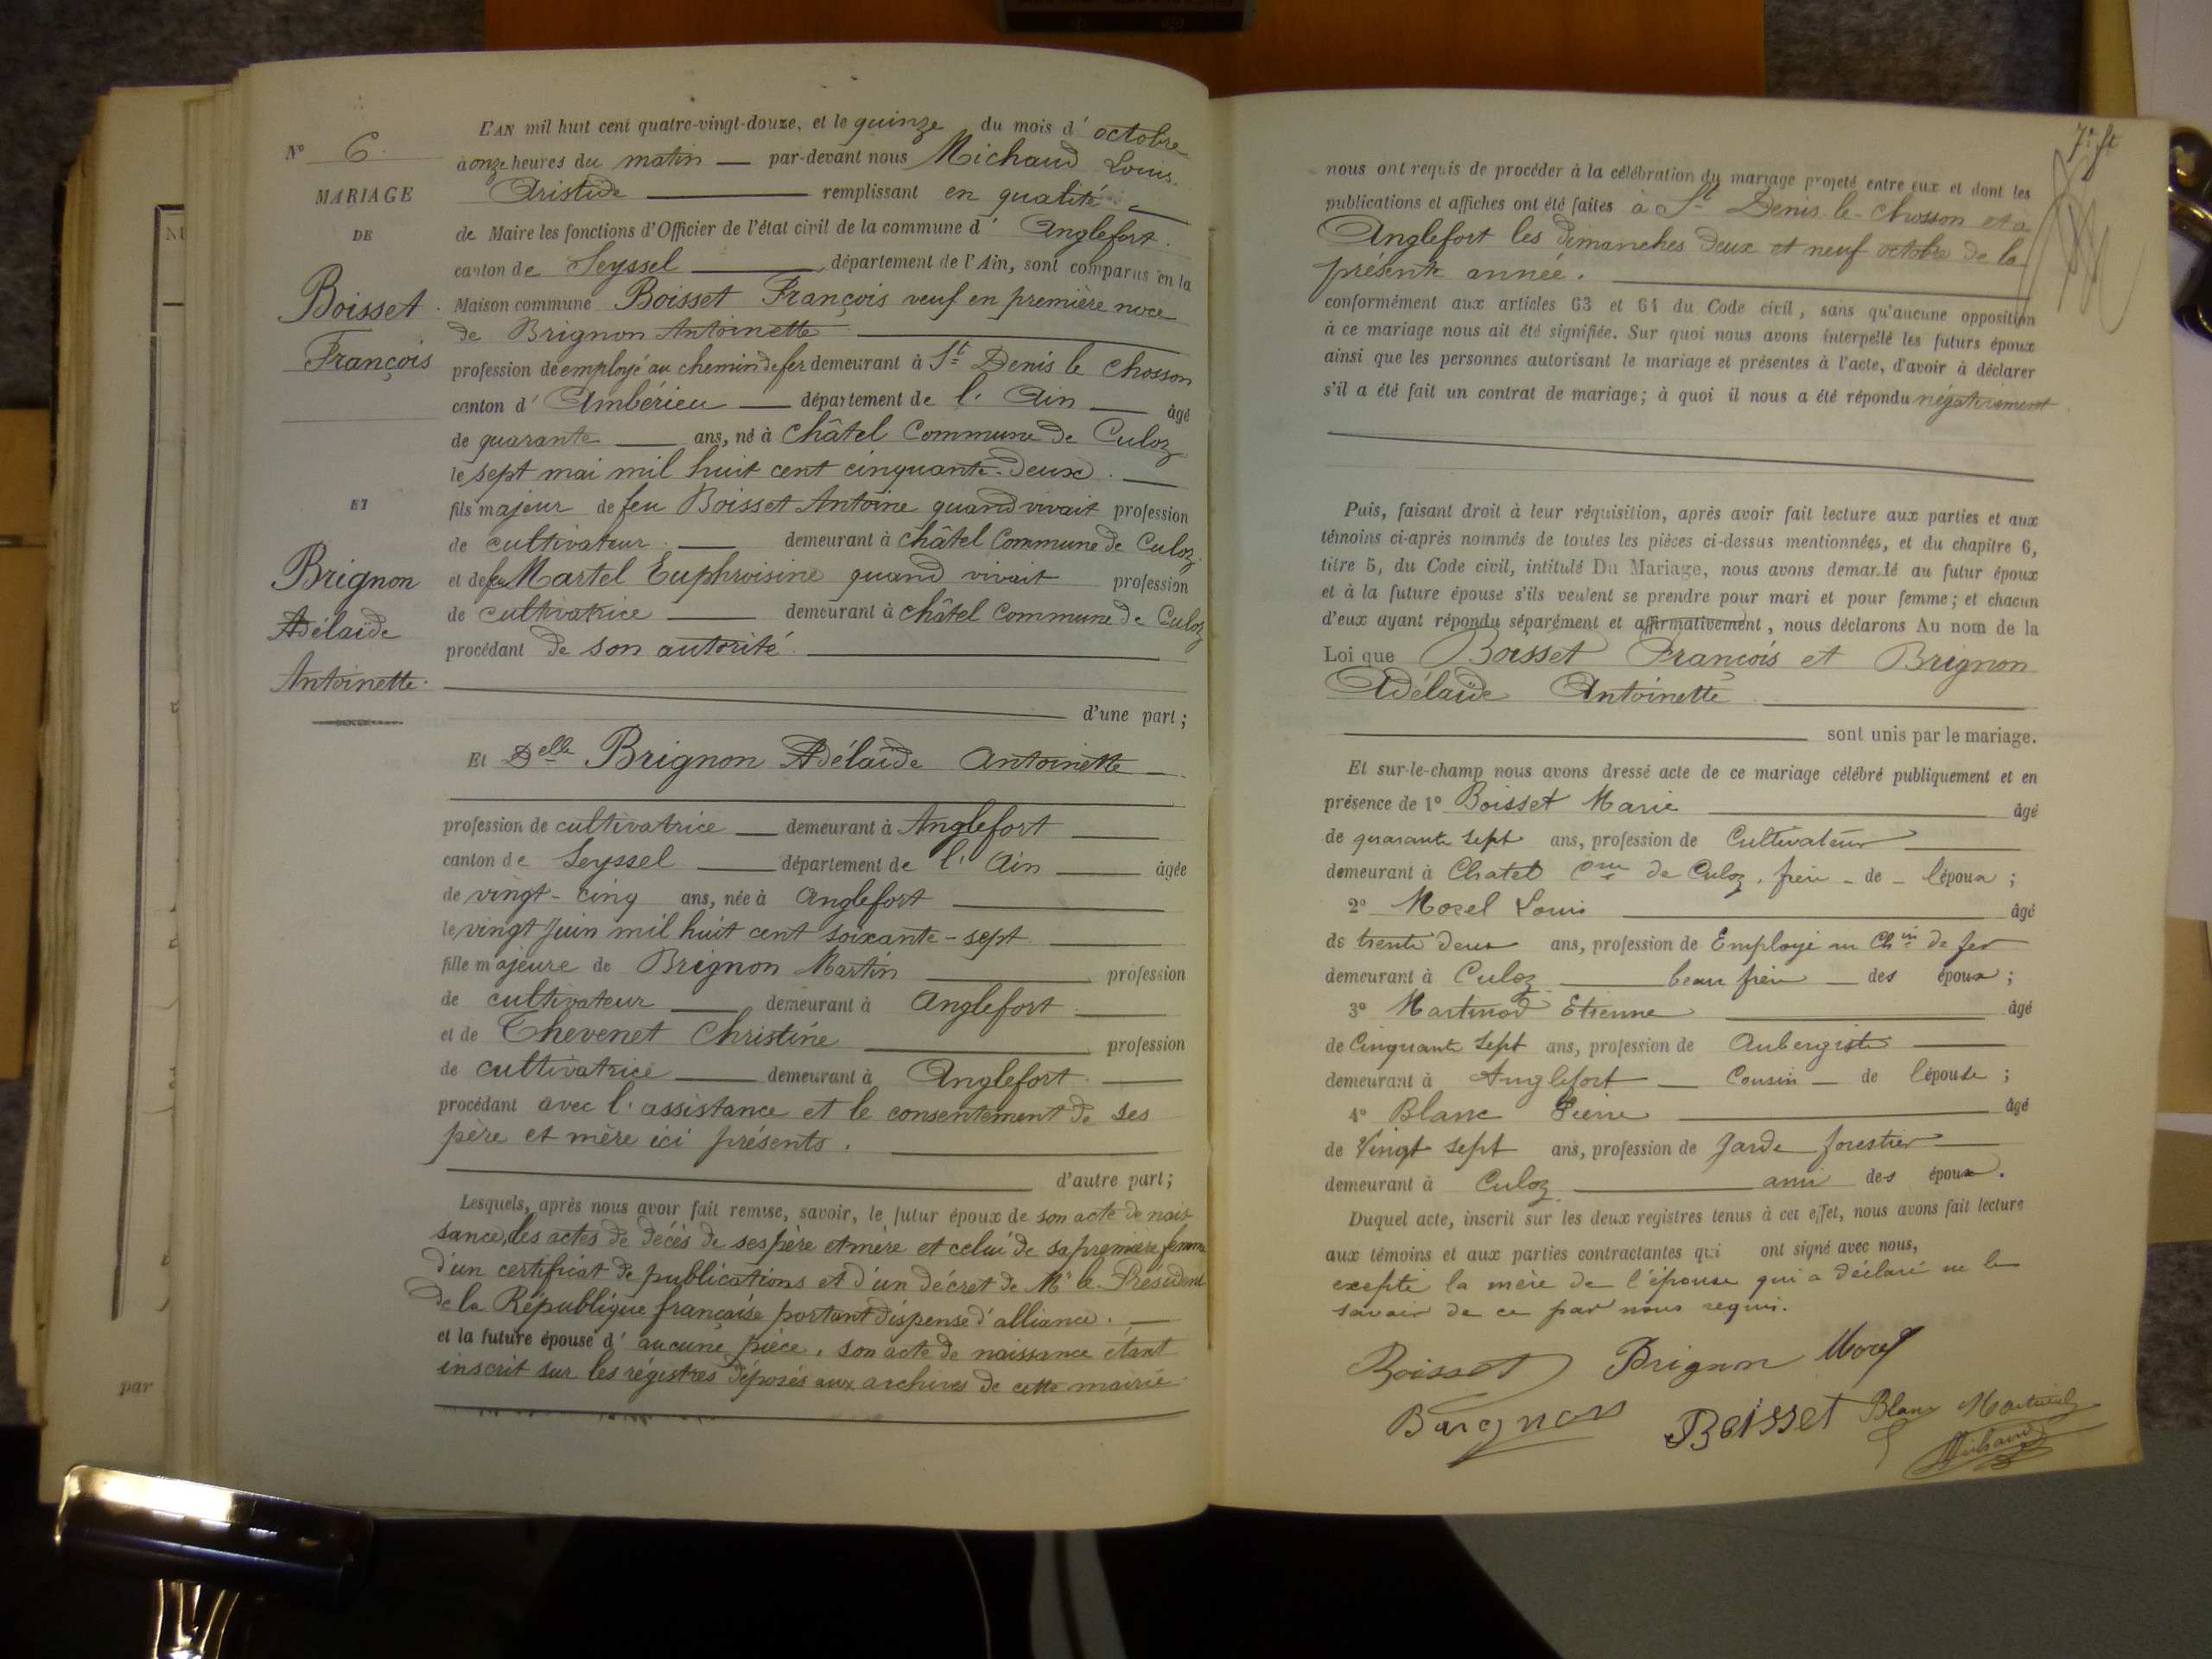 N° 6.
MARIAGE
DE
Boisset
François
ET
Brignon
Adélaïde
Antoinette.
L'AN mil huit cent quatre-vingt-douze, et le quinze du mois d' octobre
à onze heures du matin — par-devant nous Michaud Louis
Aristide — remplissant en qualité —
de Maire les fonctions d'Officier de l'état civil de la commune d' Anglefort.
canton de Seyssel — département de l'Ain, sont comparus en la
Maison commune Boisset François veuf en première noce
de Brignon Antoinette —
profession de employé au chemin de fer demeurant à St Denis le Chosson
canton d' Ambérieu — département de l'Ain — âgé
de quarante — ans, né à Châtel Commune de Culoz
le sept mai mil huit cent cinquante-deux. —
fils majeur de feu Boisset Antoine quand vivait profession
de cultivateur. — demeurant à Châtel Commune de Culoz.
et de feu Martel Euphroisine quand vivait profession
de cultivatrice — demeurant à Châtel Commune de Culoz
procédant de son autorité. —
d'une part;
Et Delle Brignon Adélaïde Antoinette —
profession de cultivatrice — demeurant à Anglefort —
canton de Seyssel — département de l'Ain — âgée
de vingt-cinq ans, née à Anglefort —
le vingt Juin mil huit cent soixante-sept. —
fille majeure de Brignon Martin — profession
de cultivateur — demeurant à Anglefort —
et de Thevenet Christine — profession
de cultivatrice — demeurant à Anglefort. —
procédant avec l'assistance et le consentement de ses
père et mère ici présents. —
d'autre part;
Lesquels, après nous avoir fait remise, savoir, le futur époux de son acte de nais
sance, des actes de décès de ses père et mère et celui de sa première femme
d'un certificat de publications et d'un décret de Mr le Président
de la République française portant dispense d'alliance. —
et la future épouse d' aucune pièce, son acte de naissance étant
inscrit sur les régistres déposés aux archives de cette mairie.
par
nous ont requis de procéder à la célébration du mariage projeté entre eux et dont les
publications et affiches ont été faites à St Denis-le-Chosson et à
Anglefort les dimanches deux et neuf octobre de la
présente année. —
conformément aux articles 63 et 64 du Code civil, sans qu'aucune opposition
à ce mariage nous ait été signifiée. Sur quoi nous avons interpellé les futurs époux
ainsi que les personnes autorisant le mariage et présentes à l'acte, d'avoir à déclarer
s'il a été fait un contrat de mariage; à quoi il nous a été répondu négativement
Puis, faisant droit à leur réquisition, après avoir fait lecture aux parties et aux
témoins ci-après nommés de toutes les pièces ci-dessus mentionnées, et du chapitre 6,
titre 5, du Code civil, intitulé Du Mariage, nous avons demandé au futur époux
et à la future épouse s'ils veulent se prendre pour mari et pour femme; et chacun
d'eux ayant répondu séparément et affirmativement, nous déclarons Au nom de la
Loi que Boisset François et Brignon
Adélaïde Antoinette —
— sont unis par le mariage.
Et sur-le-champ nous avons dressé acte de ce mariage célébré publiquement et en
présence de 1° Boisset Marie — âgé
de quarante sept ans, profession de Cultivateur —
demeurant à Chatel Cne de Culoz, frère - de - l'époux;
2° Morel Louis — âgé
de trente deux ans, profession de Employé au Chin de fer
demeurant à Culoz — beau frère — des époux;
3° Martinod Etienne — âgé
de Cinquante sept ans, profession de Aubergiste —
demeurant à Anglefort — Cousin — de l'épouse;
4° Blanc Pierre — âgé
de Vingt sept ans, profession de garde forestier —
demeurant à Culoz — ami des époux.
Duquel acte, inscrit sur les deux registres tenus à cet effet, nous avons fait lecture
aux témoins et aux parties contractantes qui ont signé avec nous,
exepté la mère de l'épouse qui a déclaré ne le
savoir de ce par nous requis.
Boisset Brignon Morel
Brignon Boisset Blanc Martinod
Michaud